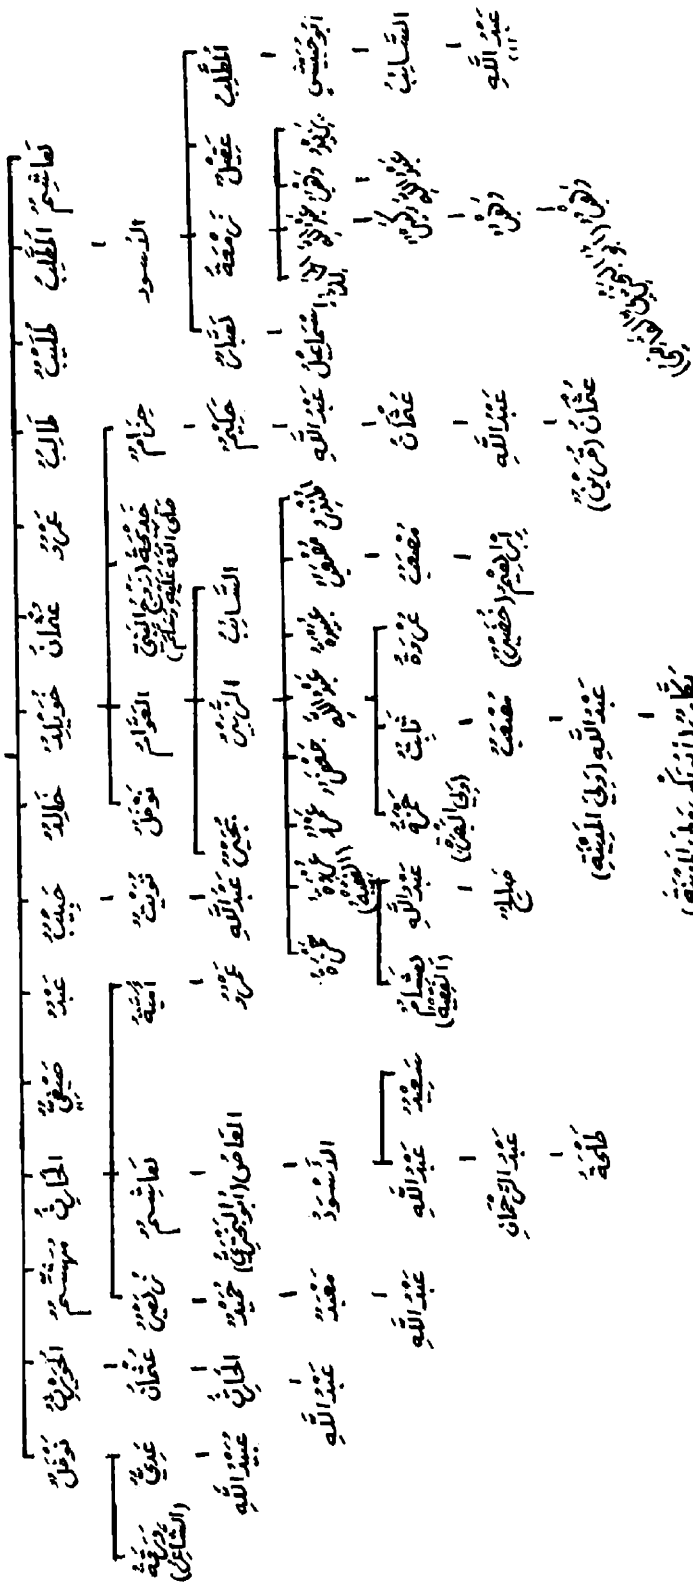 هَاشِمٌ
المُطَّلِبُ
طُلَيْبٌ
طَالِبٌ
عَمْرٌو
عُثْمَانُ
خُوَيْلِدٌ
خَالِدٌ
حَبِيبٌ
عَبْدٌ
صَيْفِيٌّ
الحَارِثُ
مُهَشِّمٌ
الحُوَيْرِثُ
نَوْفَلٌ
الأَسْوَدُ
حِزَامٌ
خَدِيجَةُ (زَوْجُ النَّبِيِّ
صَلَّى اللهُ عَلَيْهِ وَسَلَّمَ)
العَوَّامُ
نَوْفَلٌ
تُوَيْتٌ
أُمَيَّةُ
هَاشِمٌ
زُهَيْرٌ
عُثْمَانُ
عَدِيٌّ
وَرَقَةُ
(الشَّاعِرُ)
المُطَّلِبُ
عَقِيلٌ
زَمْعَةُ
هَبَّارٌ
حَكِيمٌ
السَّائِبُ
الزُّبَيْرُ
بُجَيْرٌ
عَبْدُ اللهِ
عَمْرٌو
العَاصُ (أَبُو البَخْتَرِيِّ)
حُمَيْدٌ
الحَارِثُ
عُبَيْدُ اللهِ
أَبُو حُبَيْشٍ
يَزِيدُ
وَهْبٌ
عَبْدُ اللهِ
إِسْمَاعِيلُ
عَبْدُ اللهِ
المُنْذِرُ
مُصْعَبٌ
عُبَيْدَةُ
عَبْدُ اللهِ
جَعْفَرٌ
عَمْرٌو
عُرْوَةُ
حَمْزَةُ
الأَسْوَدُ
مَعْبَدٌ
عَبْدُ اللهِ
السَّائِبُ
عَبْدُ اللهِ
عُثْمَانُ
مُصْعَبٌ
عُرْوَةُ
ثَابِتٌ
حَمْزَةُ
(وَلِيَ البَصْرَةَ)
عَبْدُ اللهِ
هِشَامٌ
(الفَقِيهُ)
سَعِيدٌ
عَبْدُ اللهِ
عَبْدُ اللهِ
عَبْدُ اللهِ
وَهْبٌ
عَبْدُ اللهِ
إِبْرَاهِيمُ (خُضَيْرٌ)
مُصْعَبٌ
صَالِحٌ
عَبْدُ الرَّحْمَانِ
وَهْبٌ
عُثْمَانُ (قُرَيْنٌ)
عَبْدُ اللهِ (وَلِيَ المَدِينَةَ)
طَلْحَةُ